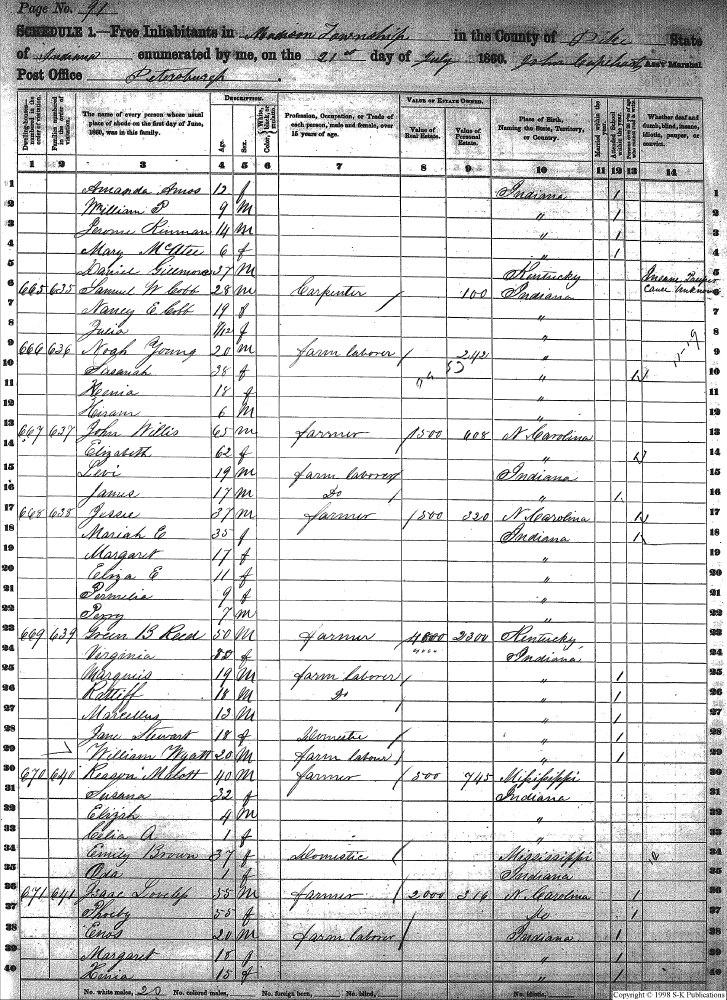 Page No. 91
SCHEDULE 1.—Free Inhabitants in Madison Township in the County of Pike State
of Indiana enumerated by me, on the 21st day of July 1860. John Capehart, Ass't Marshal
Post Office Petersburgh.
Dwelling-houses—numbered in the order of visitation.
Families numbered in the order of visitation.
The name of every person whose usual place of abode on the first day of June, 1860, was in this family.
DESCRIPTION.
Age.
Sex.
Color, White, black, or mulatto.
Profession, Occupation, or Trade of each person, male and female, over 15 years of age.
VALUE OF ESTATE OWNED.
Value of Real Estate.
Value of Personal Estate.
Place of Birth, Naming the State, Territory, or Country.
Married within the year.
Attended School within the year.
Whether deaf and dumb, blind, insane, idiotic, pauper, or convict.
1 2 3 4 5 6 7 8 9 10 11 12 13 14
1 Amanda Amos 12 f Indiana / 1
2 William P 9 m " / 2
3 Jerome Kinman 14 m " / 3
4 Mary McAtee 6 f " / 4
5 Daniel 37 m Kentucky Insane Pauper 5
6 665 635 Samuel W Cobb 28 m Carpenter / 100 Indiana Cause Unknown 6
7 Nancy E Cobb 19 f " 7
8 Julia /12 f " 8
9 666 636 Noah Young 20 m farm laborer / 242 " 9
10 Susanah 28 f " 10
11 Kenia 18 f " 11
12 Hiram 6 m " 12
13 667 637 John Willis 65 m farmer / 1500 608 N Carolina 13
14 Elizabeth 62 f " 14
15 Levi 19 m farm laborer / Indiana 15
16 James 17 m Do / " 1 16
17 668 638 Jessie 37 m farmer / 1500 320 N Carolina 17
18 Mariah E 35 f Indiana 18
19 Margaret 17 f " 19
20 Eliza E 11 f " 20
21 Permelia 9 f " 21
22 Perry 7 m " 22
23 669 639 Green B Reed 50 m farmer 4000 2300 Kentucky 23
24 Virginia f 4000 Indiana 24
25 Marquis 19 m farm laborer / " / 25
26 Ratliff 18 m Do / " / 26
27 Marcellus 13 m " / 27
28 Jane Stewart 18 f Domestic / " / 28
29 William Wyatt 20 m farm labour / " / 29
30 670 640 Reason Malott 40 m farmer / 500 745 Mississippi 30
31 Susana 32 f Indiana 31
32 Elizah 4 m " 32
33 Celia A 1 f " 33
34 Emily Brown 37 f Domestic / Mississippi 34
35 Oda 1 f Indiana 35
36 671 641 Isaac Lovelip 55 m farmer / 2000 316 N Carolina / 36
37 Phoeby 55 f Do / 37
38 Enos 20 m farm laborer / Indiana / 38
39 Margaret 18 f " / 39
40 Kenia 15 f " / 40
No. white males, 20 No. colored males, No. foreign born, No. blind, No. idiotic,
Copyright © 1998 S-K Publications